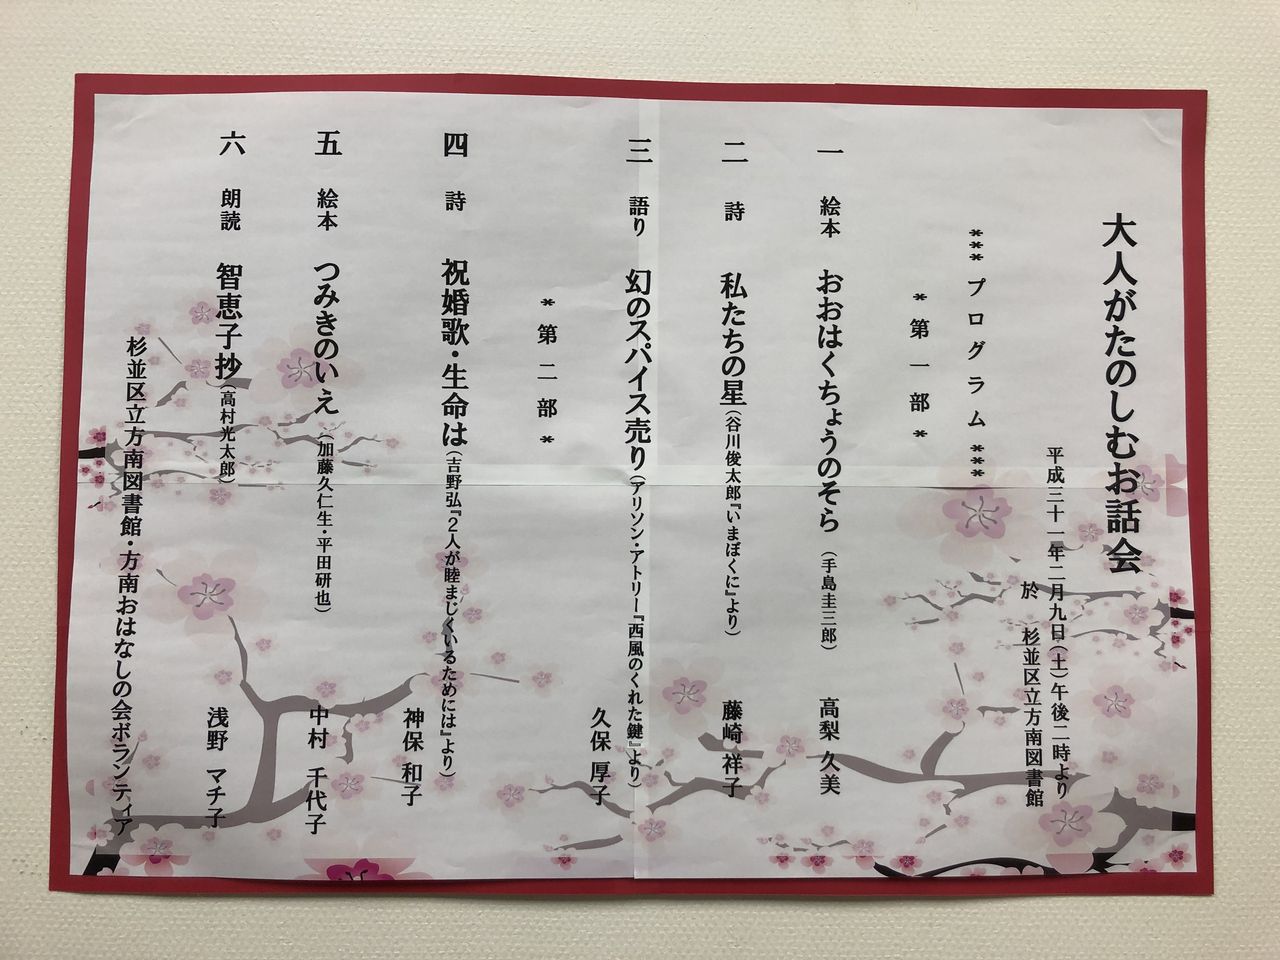 大人がたのしむお話会
平成三十一年二月九日(土)午後二時より
於 杉並区立方南図書館
*** プログラム ***
* 第一部 *
一 絵本 おおはくちょうのそら (手島圭三郎) 高梨 久美
二 詩 私たちの星 (谷川俊太郎『いまぼくに』より) 藤崎 祥子
三 語り 幻のスパイス売り (アリソン・アトリー『西風のくれた鍵』より)
久保 厚子
* 第二部 *
四 詩 祝婚歌・生命は (吉野弘『2人が睦まじくいるためには』より)
神保 和子
五 絵本 つみきのいえ (加藤久仁生・平田研也) 中村 千代子
六 朗読 智恵子抄 (高村光太郎) 浅野 マチ子
杉並区立方南図書館・方南おはなしの会ボランティア